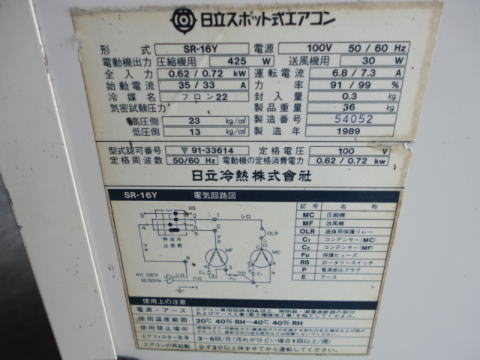 日立スポット式エアコン
形式 SR-16Y 電源 100V 50/60 Hz
電動機出力 圧縮機用 425 W 送風機用 30 W
全入力 0.62/0.72 kw 運転電流 6.8/7.3 A
始動電流 35/33 A 力率 91/99 %
冷媒名 フロン22 封入量 0.3 kg
気密試験圧力 製品質量 36 kg
高圧側 23 kg/c㎡ 製造番号 54052
低圧側 13 kg/c㎡ 製造年 1989
型式認可番号 91-33614 定格電圧 100 V
定格周波数 50/60 Hz 電動機の定格消費電力 0.62/0.72 kw
日立冷熱株式會社
SR-16Y 電気回路図
記号 名称
MC 圧縮機
MF 送風機
OLR 過負荷保護リレー
C₁ コンデンサー(MC)
C₂ コンデンサー(MF)
Fu 保護ヒューズ
RS ロータリースイッチ
P 電源差込プラグ
E アース
RS
シロ
OLR
MF
MC
C₂
C₁
Fu
AC 100V
50/60Hz
P
E
使用上の注意
電源・アース
使用温度範囲 20℃ 40% RH~40℃ 40% RH
使用禁止場所
エアフィルター洗浄 3~5回/月(汚れがひどい場合1回以上/週)
エアコンの再起動 必ず3分以上休ませてから運転してください。